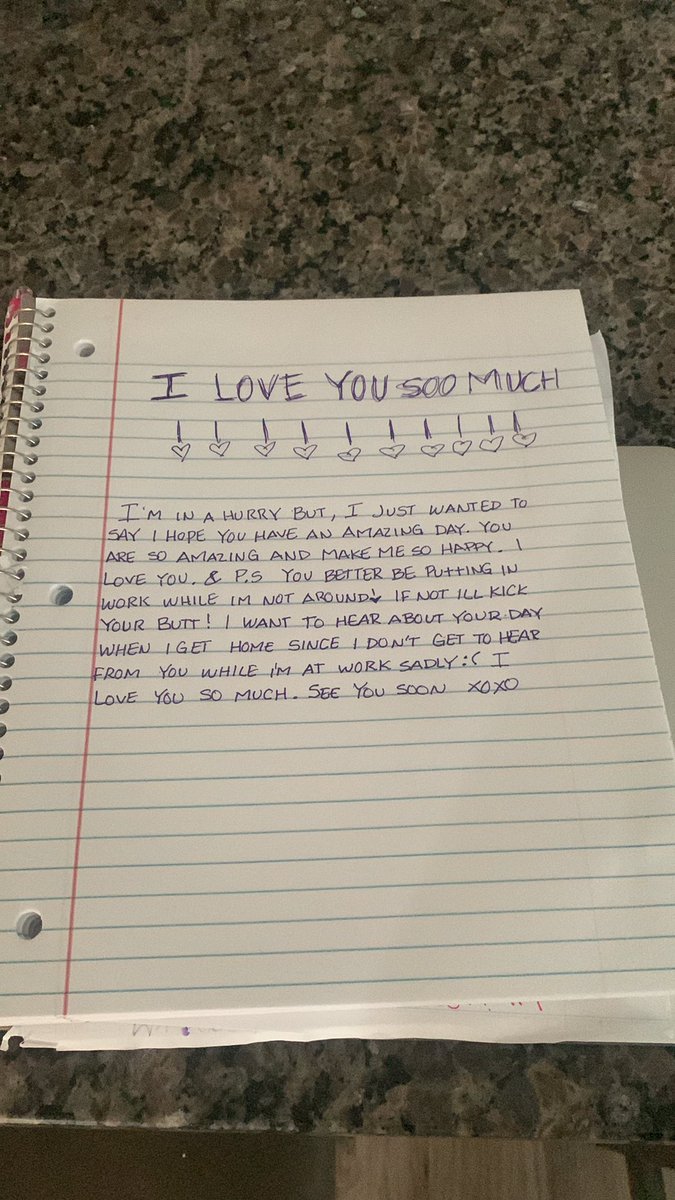 I LOVE YOU SOO MUCH
I'M IN A HURRY BUT, I JUST WANTED TO
SAY I HOPE YOU HAVE AN AMAZING DAY. YOU
ARE SO AMAZING AND MAKE ME SO HAPPY. I
LOVE YOU. & P.S YOU BETTER BE PUTTING IN
WORK WHILE IM NOT AROUND! IF NOT ILL KICK
YOUR BUTT! I WANT TO HEAR ABOUT YOUR DAY
WHEN I GET HOME SINCE I DON'T GET TO HEAR
FROM YOU WHILE I'M AT WORK SADLY :( I
LOVE YOU SO MUCH. SEE YOU SOON XOXO